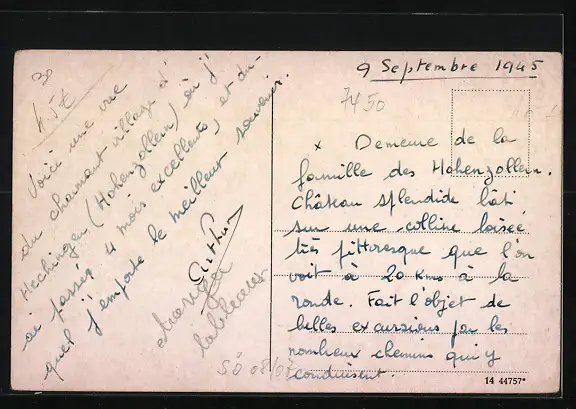 30
4.5€
Voici une vue
du charmant village d'
Hechingen (Hohenzollern) où j'
ai passé 4 mois excellents, et du-
quel j'emporte le meilleur souvenir.
Arthur
50 08/07
9 Septembre 1945
7450
x Demeure de la
famille des Hohenzollern.
Château splendide bâti
sur une colline boisée
très pittoresque que l'on
voit à 20 Kms à la
ronde. Fait l'objet de
belles excursions par les
nombreux chemins qui y
conduisent.
14 44757*